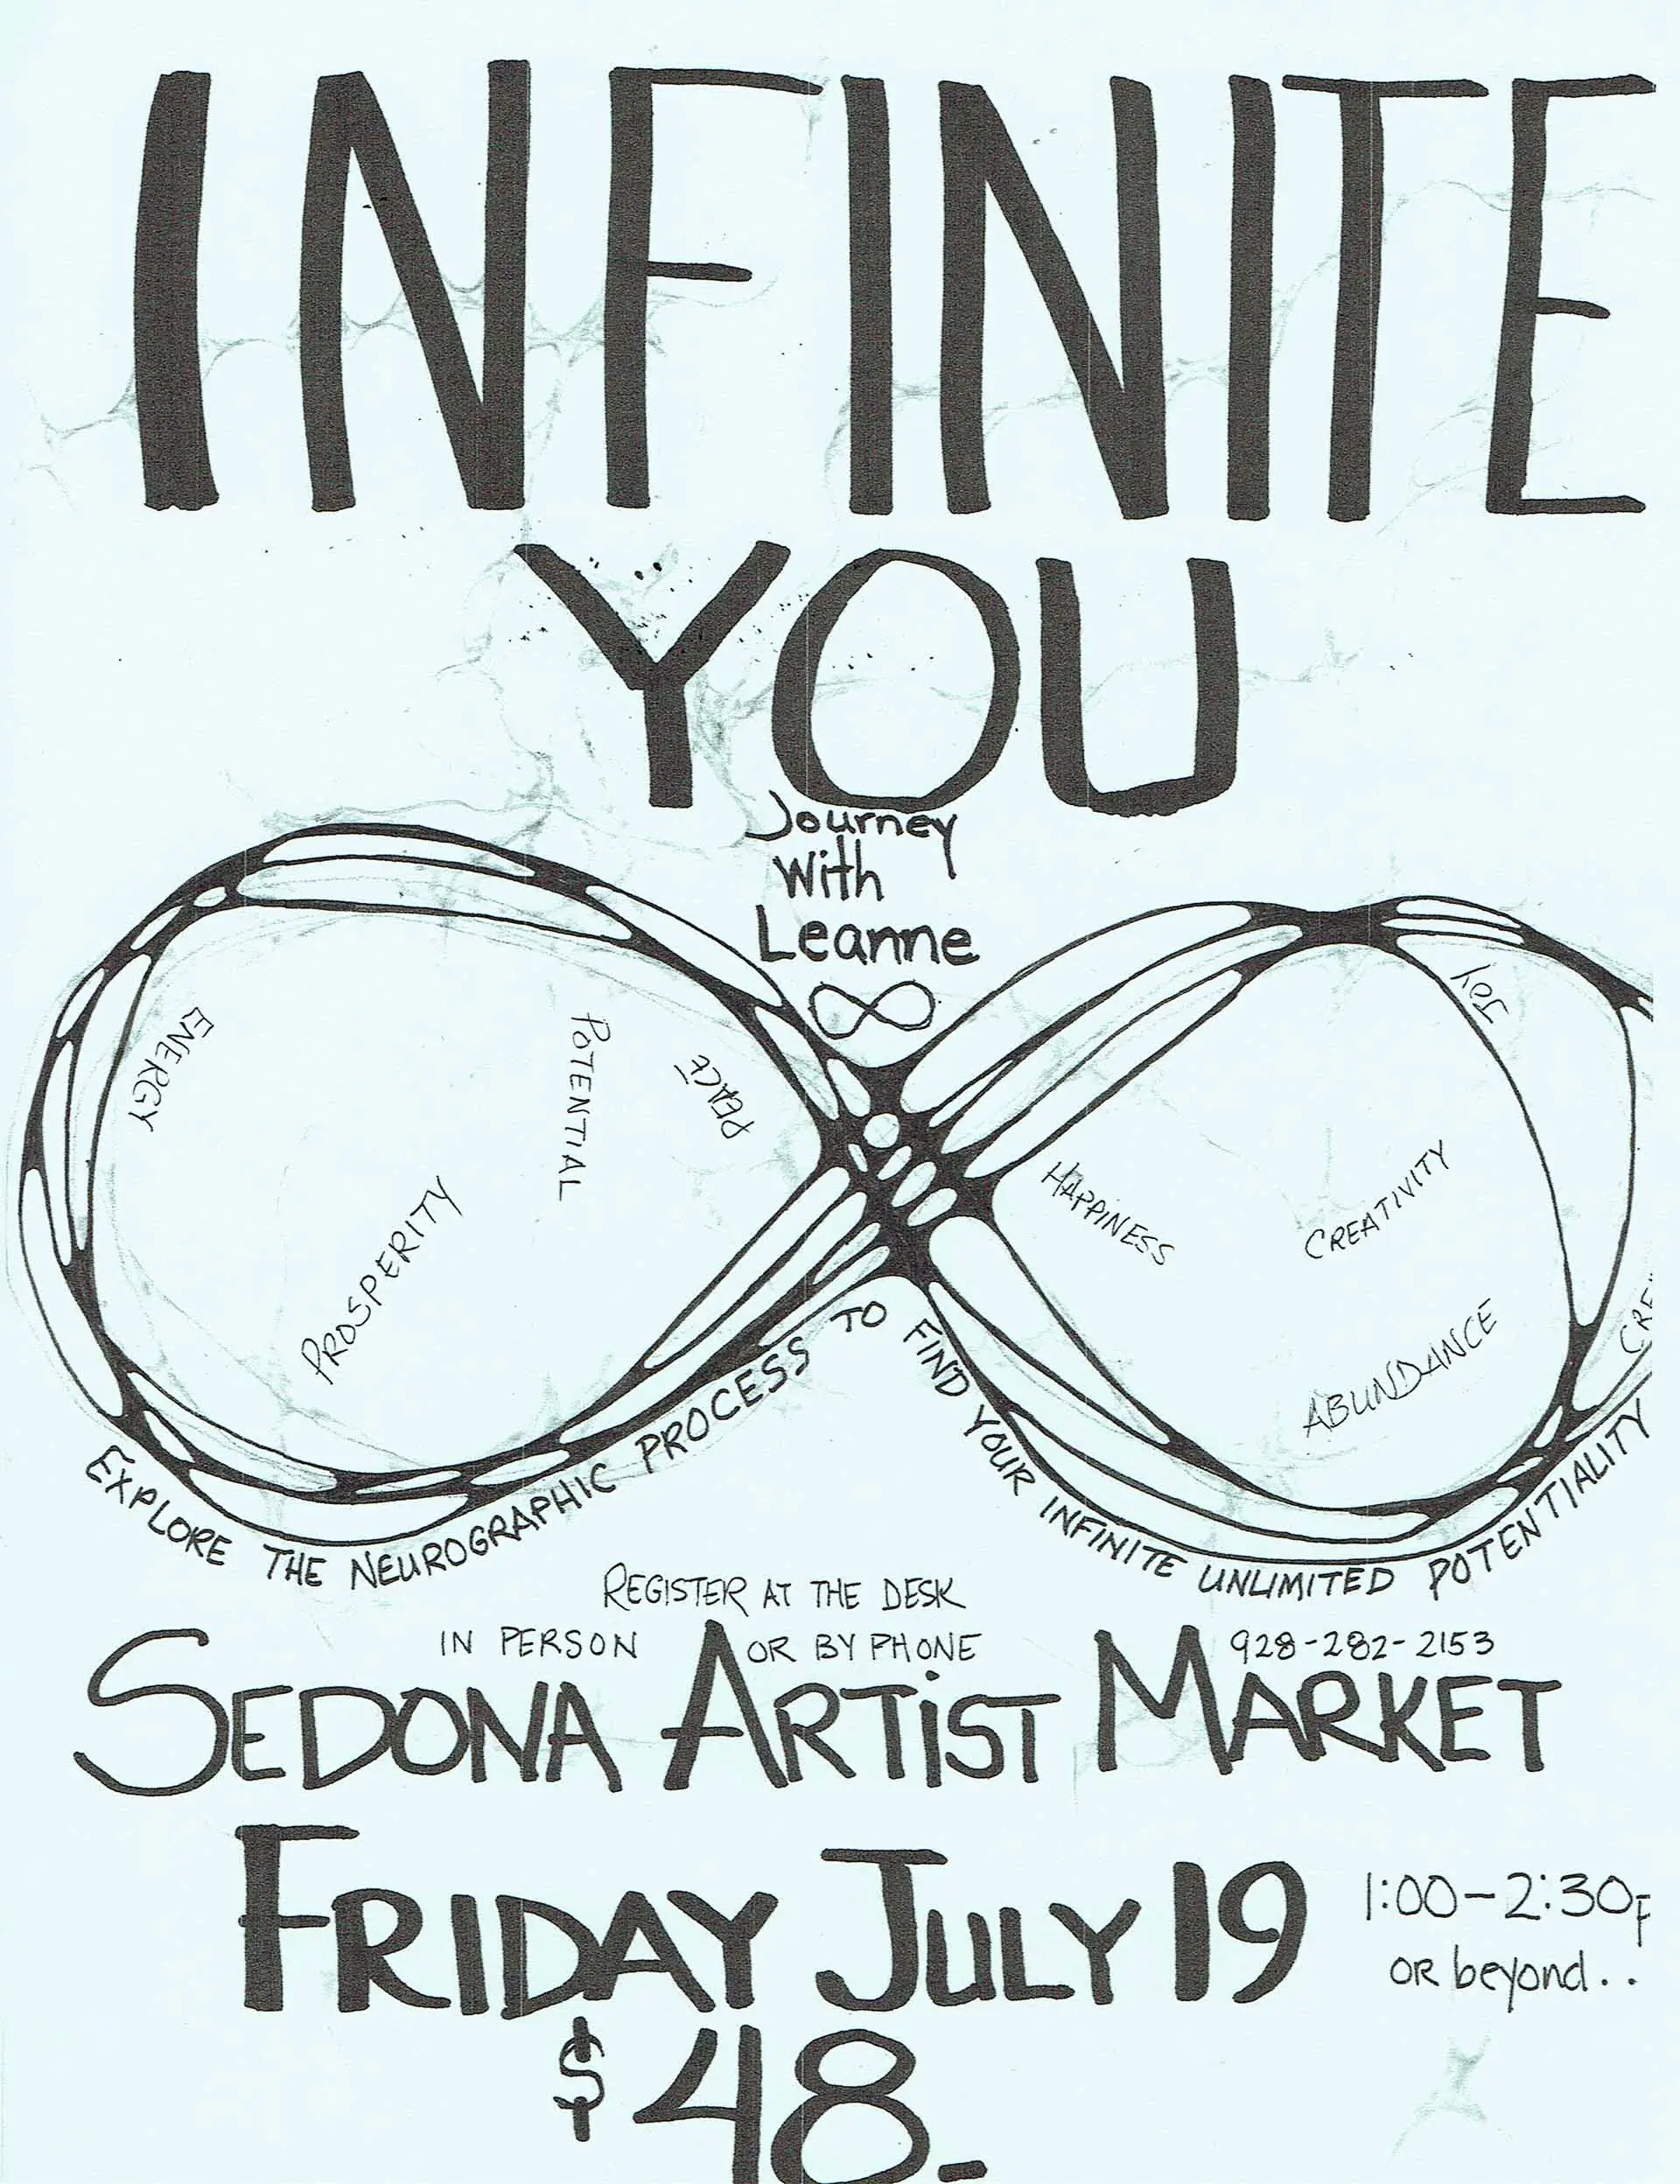 INFINITE
YOU
Journey
With
Leanne
ENERGY
POTENTIAL
PEACE
PROSPERITY
JOY
HAPPINESS
CREATIVITY
ABUNDANCE
EXPLORE THE NEUROGRAPHIC PROCESS TO FIND YOUR INFINITE UNLIMITED POTENTIALITY
REGISTER AT THE DESK
IN PERSON OR BY PHONE 928-282-2153
SEDONA ARTIST MARKET
FRIDAY JULY 19 1:00-2:30P
OR beyond..
$48.-